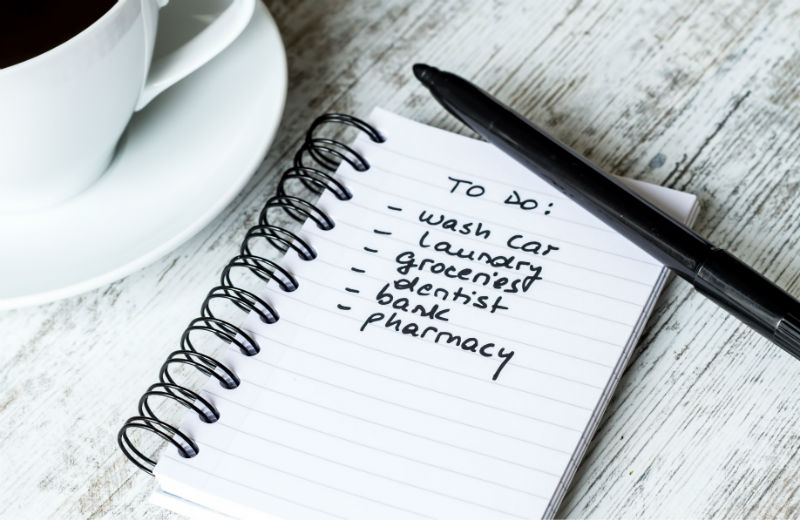 TO DO:
- wash car
- laundry
- groceries
- dentist
- bank
- pharmacy